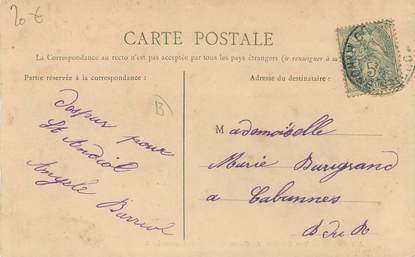 20 €
CARTE POSTALE
La Correspondance au recto n'est pas acceptée par tous les pays étrangers (se renseigner à
Partie réservée à la correspondance
Adresse du destinataire
B
pour
St Andiol
Angèle Barriol
Mademoiselle
Marie
a Cabannes
B du R